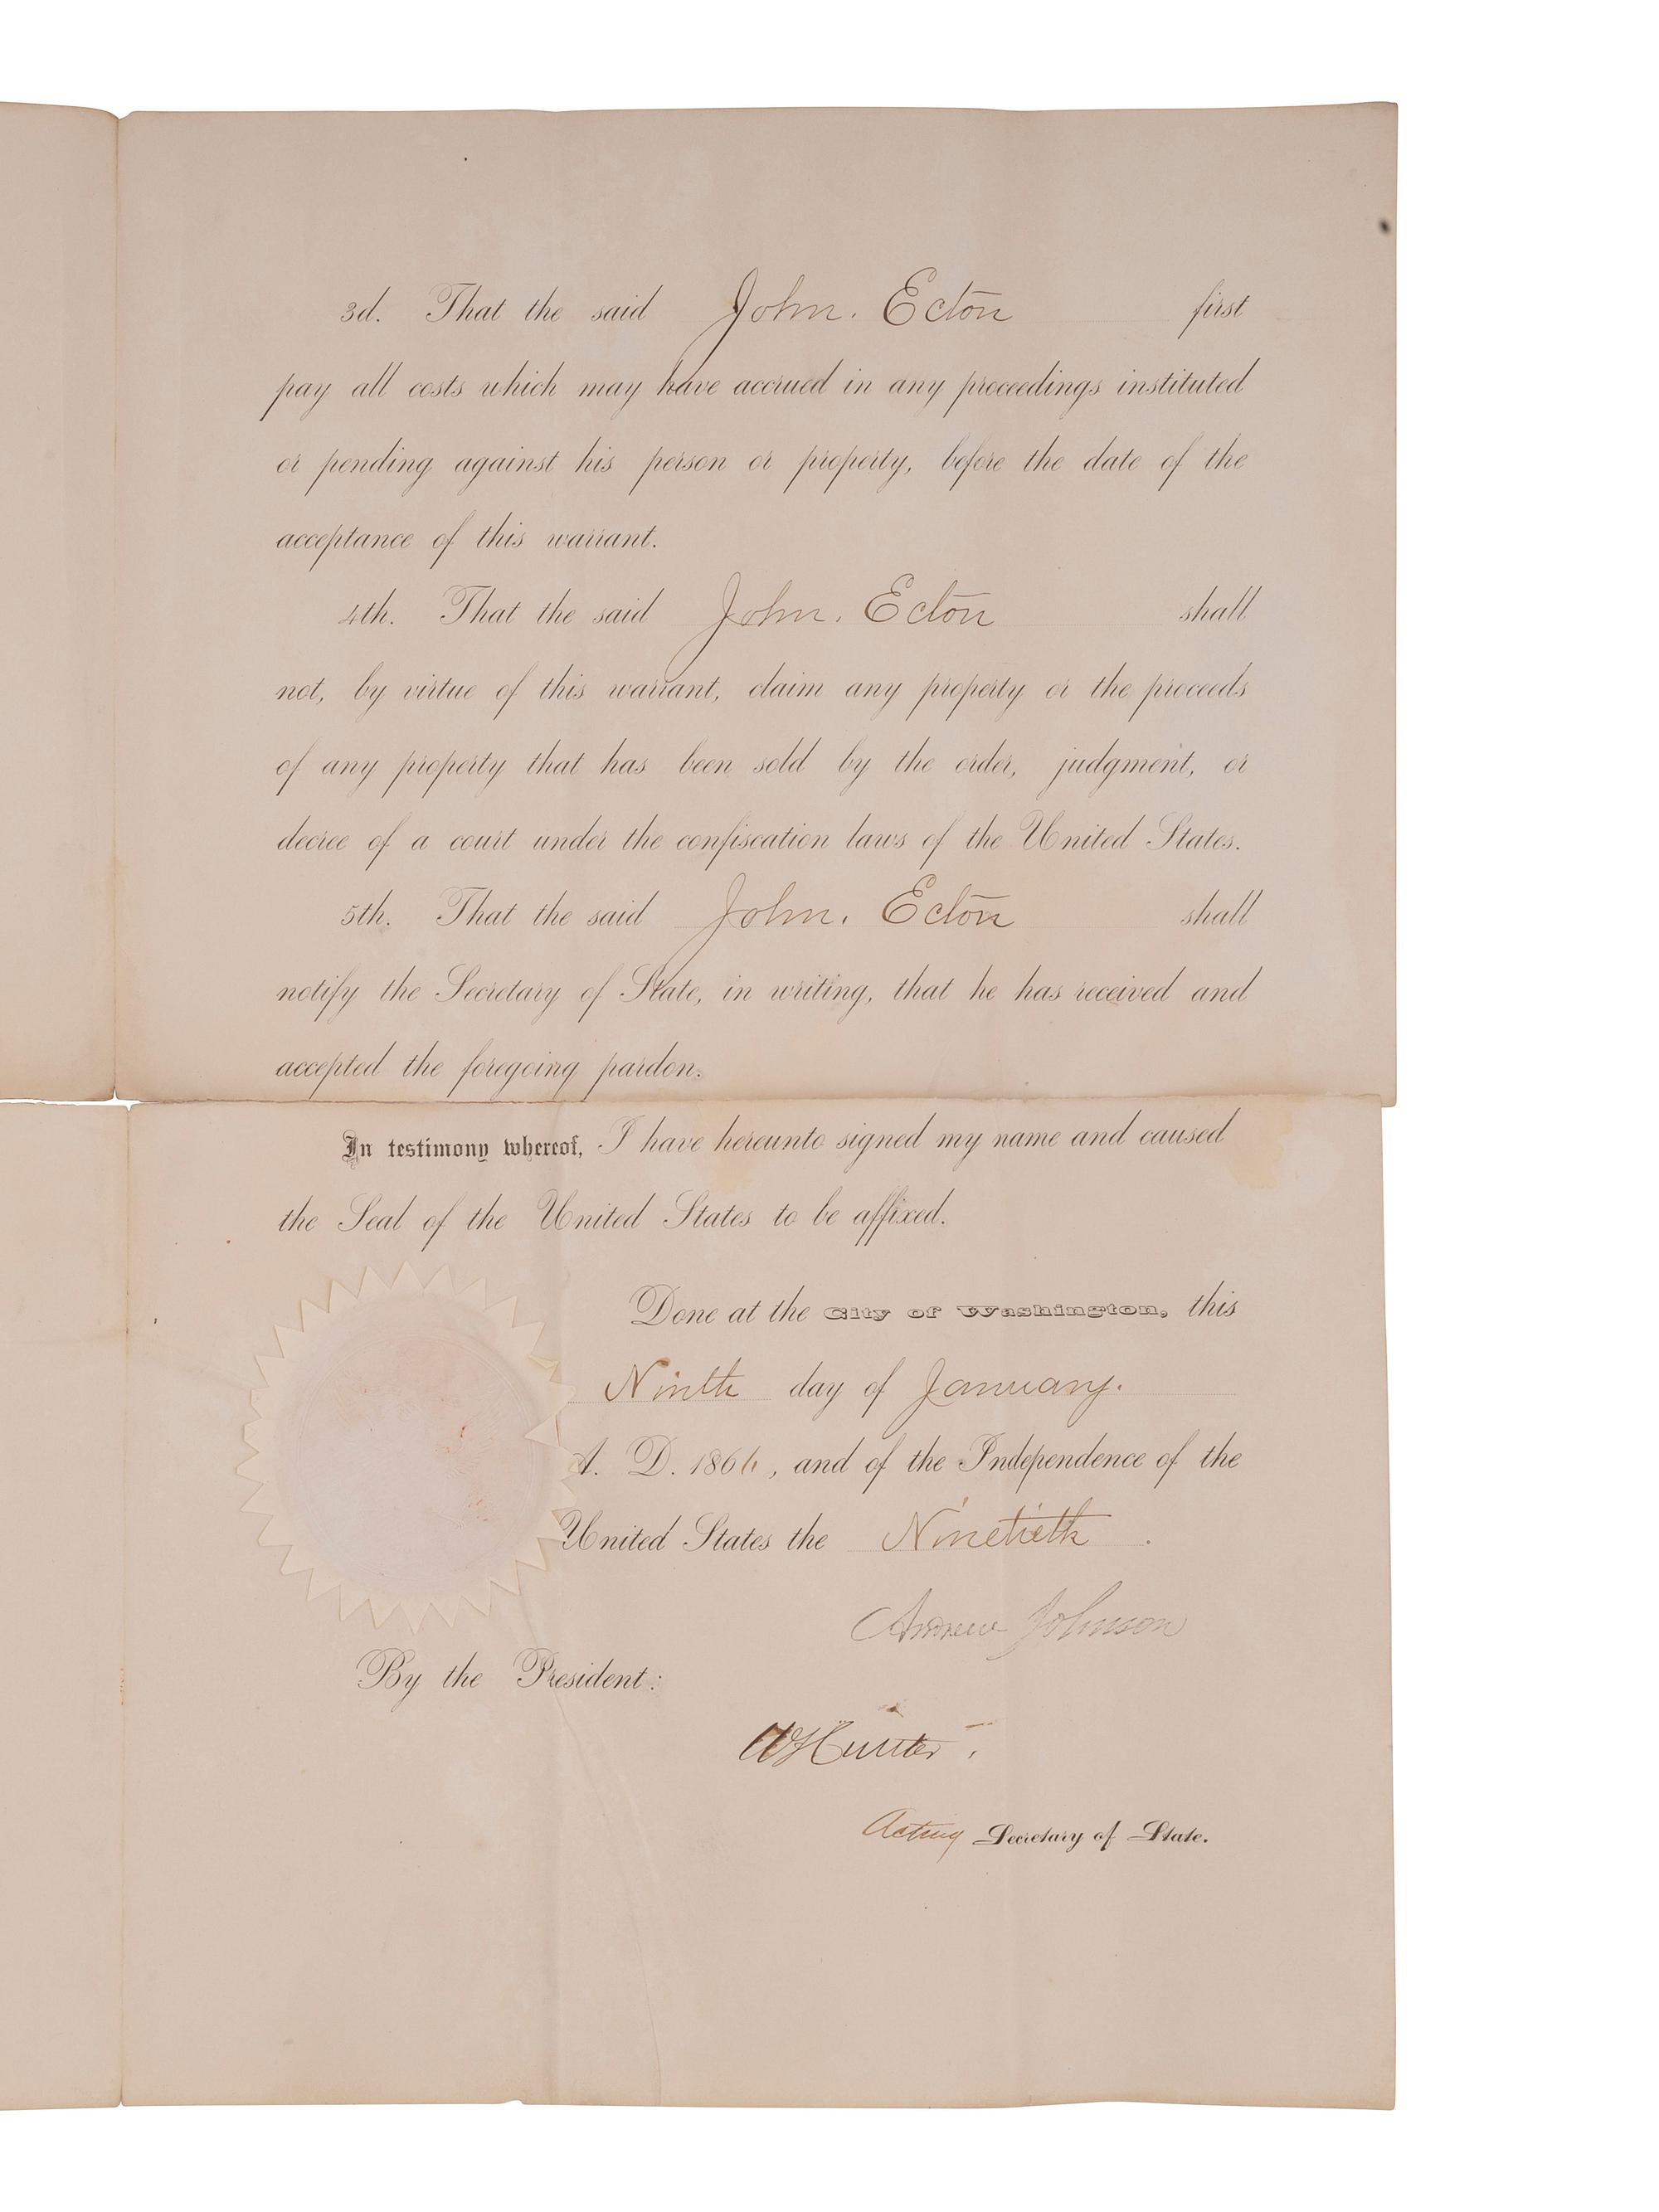 3d. That the said John. Ecton first
pay all costs which may have accrued in any proceedings instituted
or pending against his person or property, before the date of the
acceptance of this warrant.
4th. That the said John. Ecton shall
not, by virtue of this warrant, claim any property or the proceeds
of any property that has been sold by the order, judgment, or
decree of a court under the confiscation laws of the United States.
5th. That the said John. Ecton shall
notify the Secretary of State, in writing, that he has received and
accepted the foregoing pardon.
In testimony whereof, I have hereunto signed my name and caused
the Seal of the United States to be affixed.
Done at the City of Washington, this
Ninth day of January.
A. D. 1866, and of the Independence of the
United States the Ninetieth.
Andrew Johnson
By the President:
W Hunter,
Acting Secretary of State.